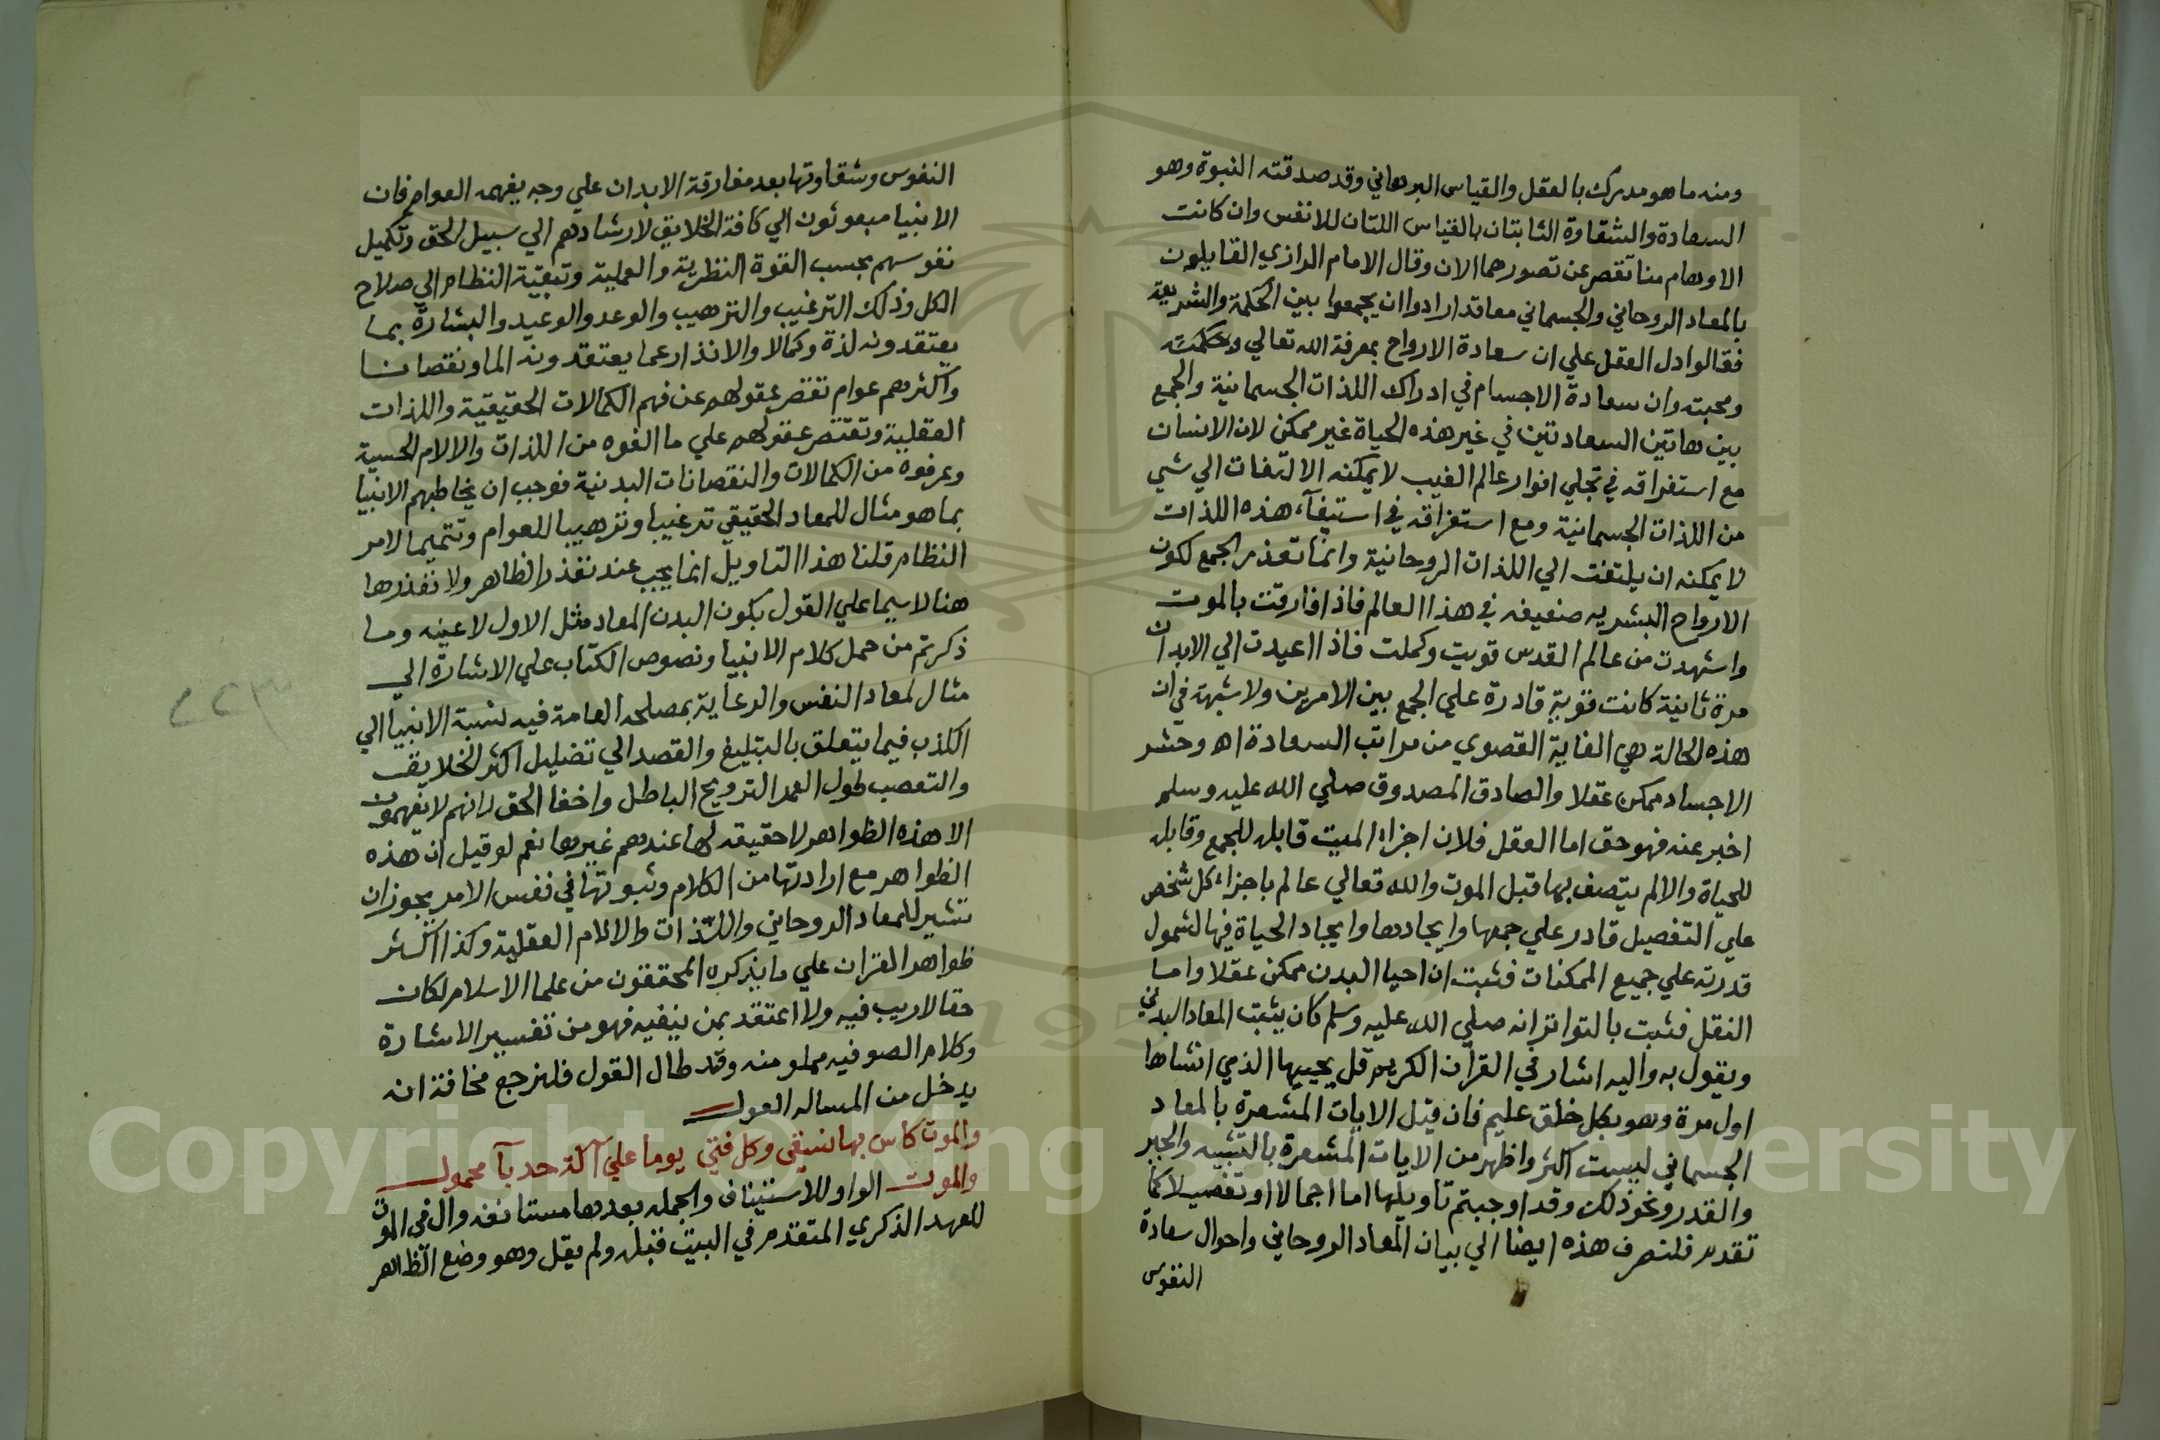 ومنه ما هو مدرك بالعقل والقياس البرهاني وقد صدقته النبوة وهو
السعادة والشقاوة الثابتتان بالقياس اللتان للانفس وان كانت
الاوهام منا تقصر عن تصورهما الان وقال الامام الرازي القايلون
بالمعاد الروحاني والجسماني معا قد ارادوا ان يجمعوا بين الحكمة والشريعة
فقالوا دل العقل علي ان سعادة الارواح بمعرفة الله تعالي وحكمته
ومحبته وان سعادة الاجسام في ادراك اللذات الجسمانية والجمع
بين هاتين السعادتين في غير هذه الحياة غير ممكن لان الانسان
مع استغراقه في تجلي انوار عالم الغيب لا يمكنه الالتفات الي شي
من اللذات الجسمانية ومع استغراقه في استيفآء هذه اللذات
لا يمكنه ان يلتفت الي اللذات الروحانية وانما تعذر الجمع لكون
الارواح البشريه ضعيفه في هذا العالم فاذا فارقت بالموت
واستمدت من عالم القدس قويت وكملت فاذا اعيدت الي الابدان
مرة ثانية كانت قوية قادرة علي الجمع بين الامرين ولا شبهة في ان
هذه الحالة هي الغاية القصوي من مراتب السعادة اه وحشر
الاجساد ممكن عقلا والصادق المصدوق صلي الله عليه وسلم
اخبر عنه فهو حق اما العقل فلان اجزاء الميت قابله للجمع وقابله
للحياة والا لم يتصف بها قبل الموت والله تعالي عالم باجزاء كل شخص
علي التفصيل قادر علي جمعها وايجادها وايجاد الحياة فيها لشمول
قدرته علي جميع الممكنات فثبت ان احيا البدن ممكن عقلا واما
النقل فثبت بالتواتر انه صلي الله عليه وسلم كان يثبت المعاد البدني
ويقول به واليه اشار في القرآن الكريم قل يحييها الذي انشاها
اول مرة وهو بكل خلق عليم فان قيل الايات المشعرة بالمعاد
الجسماني ليست اكثر واظهر من الايات المشعرة بالتشبيه والجبر
والقدر ونحو ذلك وقد اوجبتم تاويلها اما اجمالا او تفصيلا كما
تقدم فلنصرف هذه ايضا الي بيان المعاد الروحاني واحوال سعادة
النفوس
النفوس وشقاوتها بعد مفارقة الابدان علي وجه يفهمه العوام فان
الانبيا مبعوثون الي كافة الخلايق لارشادهم الي سبيل الحق وتكميل
نفوسهم بحسب القوة النظرية والعملية وتبقية النظام الي صلاح
الكل وذلك الترغيب والترهيب والوعد والوعيد والبشارة بما
يعتقدونه لذة وكمالا والانذار عما يعتقدونه الما ونقصانا
واكثرهم عوام تقصر عقولهم عن فهم الكمالات الحقيقية واللذات
العقلية وتقتصر عقولهم علي ما الفوه من اللذات والالام الحسية
وعرفوه من الكمالات والنقصانات البدنية فوجب ان يخاطبهم الانبيا
بما هو مثال للمعاد الحقيقي ترغيبا وترهيبا للعوام وتتميما لامر
النظام قلنا هذا التاويل انما يجب عند تعذر الظاهر ولا تعذر ها
هنا لا سيما علي القول بكون البدن المعاد مثل الاول لا عينه وما
ذكرتم من حمل كلام الانبيا ونصوص الكتاب علي الاشارة الي
مثال لمعاد النفس والرعاية بمصلحه العامة فيه لنسبة الانبيا الي
الكذب فيما يتعلق بالتبليغ والقصد الي تضليل اكثر الخلايق
والتعصب طول العمد لترويج الباطل واخفا الحق لانهم لا يفهمون
الا هذه الظواهر لا حقيقه لها عندهم غيرها نعم لو قيل ان هذه
الظواهر مع ارادتها من الكلام وثبوتها في نفس الامر يجوز ان
تشير للمعاد الروحاني واللذات والالام العقلية وكذا اكثر
ظواهر القران علي ما يذكره المحققون من علما الاسلام لكان
حقا لا ريب فيه ولا اعتقد بمن ينفيه فهو من تفسير الاشارة
وكلام الصوفيه مملو منه وقد طال القول فلنرجع مخافة ان
يدخل من المساله العول
والموت كاس بها نسقي وكل فتي يوما علي آلة حدبآ محمول
والموت الواو للاستئناف والجمله بعدها مستانفه وال في الموت
للعهد الذكري المتقدم في البيت قبله ولم يقل وهو وضع الظاهر
٢٢٣
Copyright © King Saud University
1957